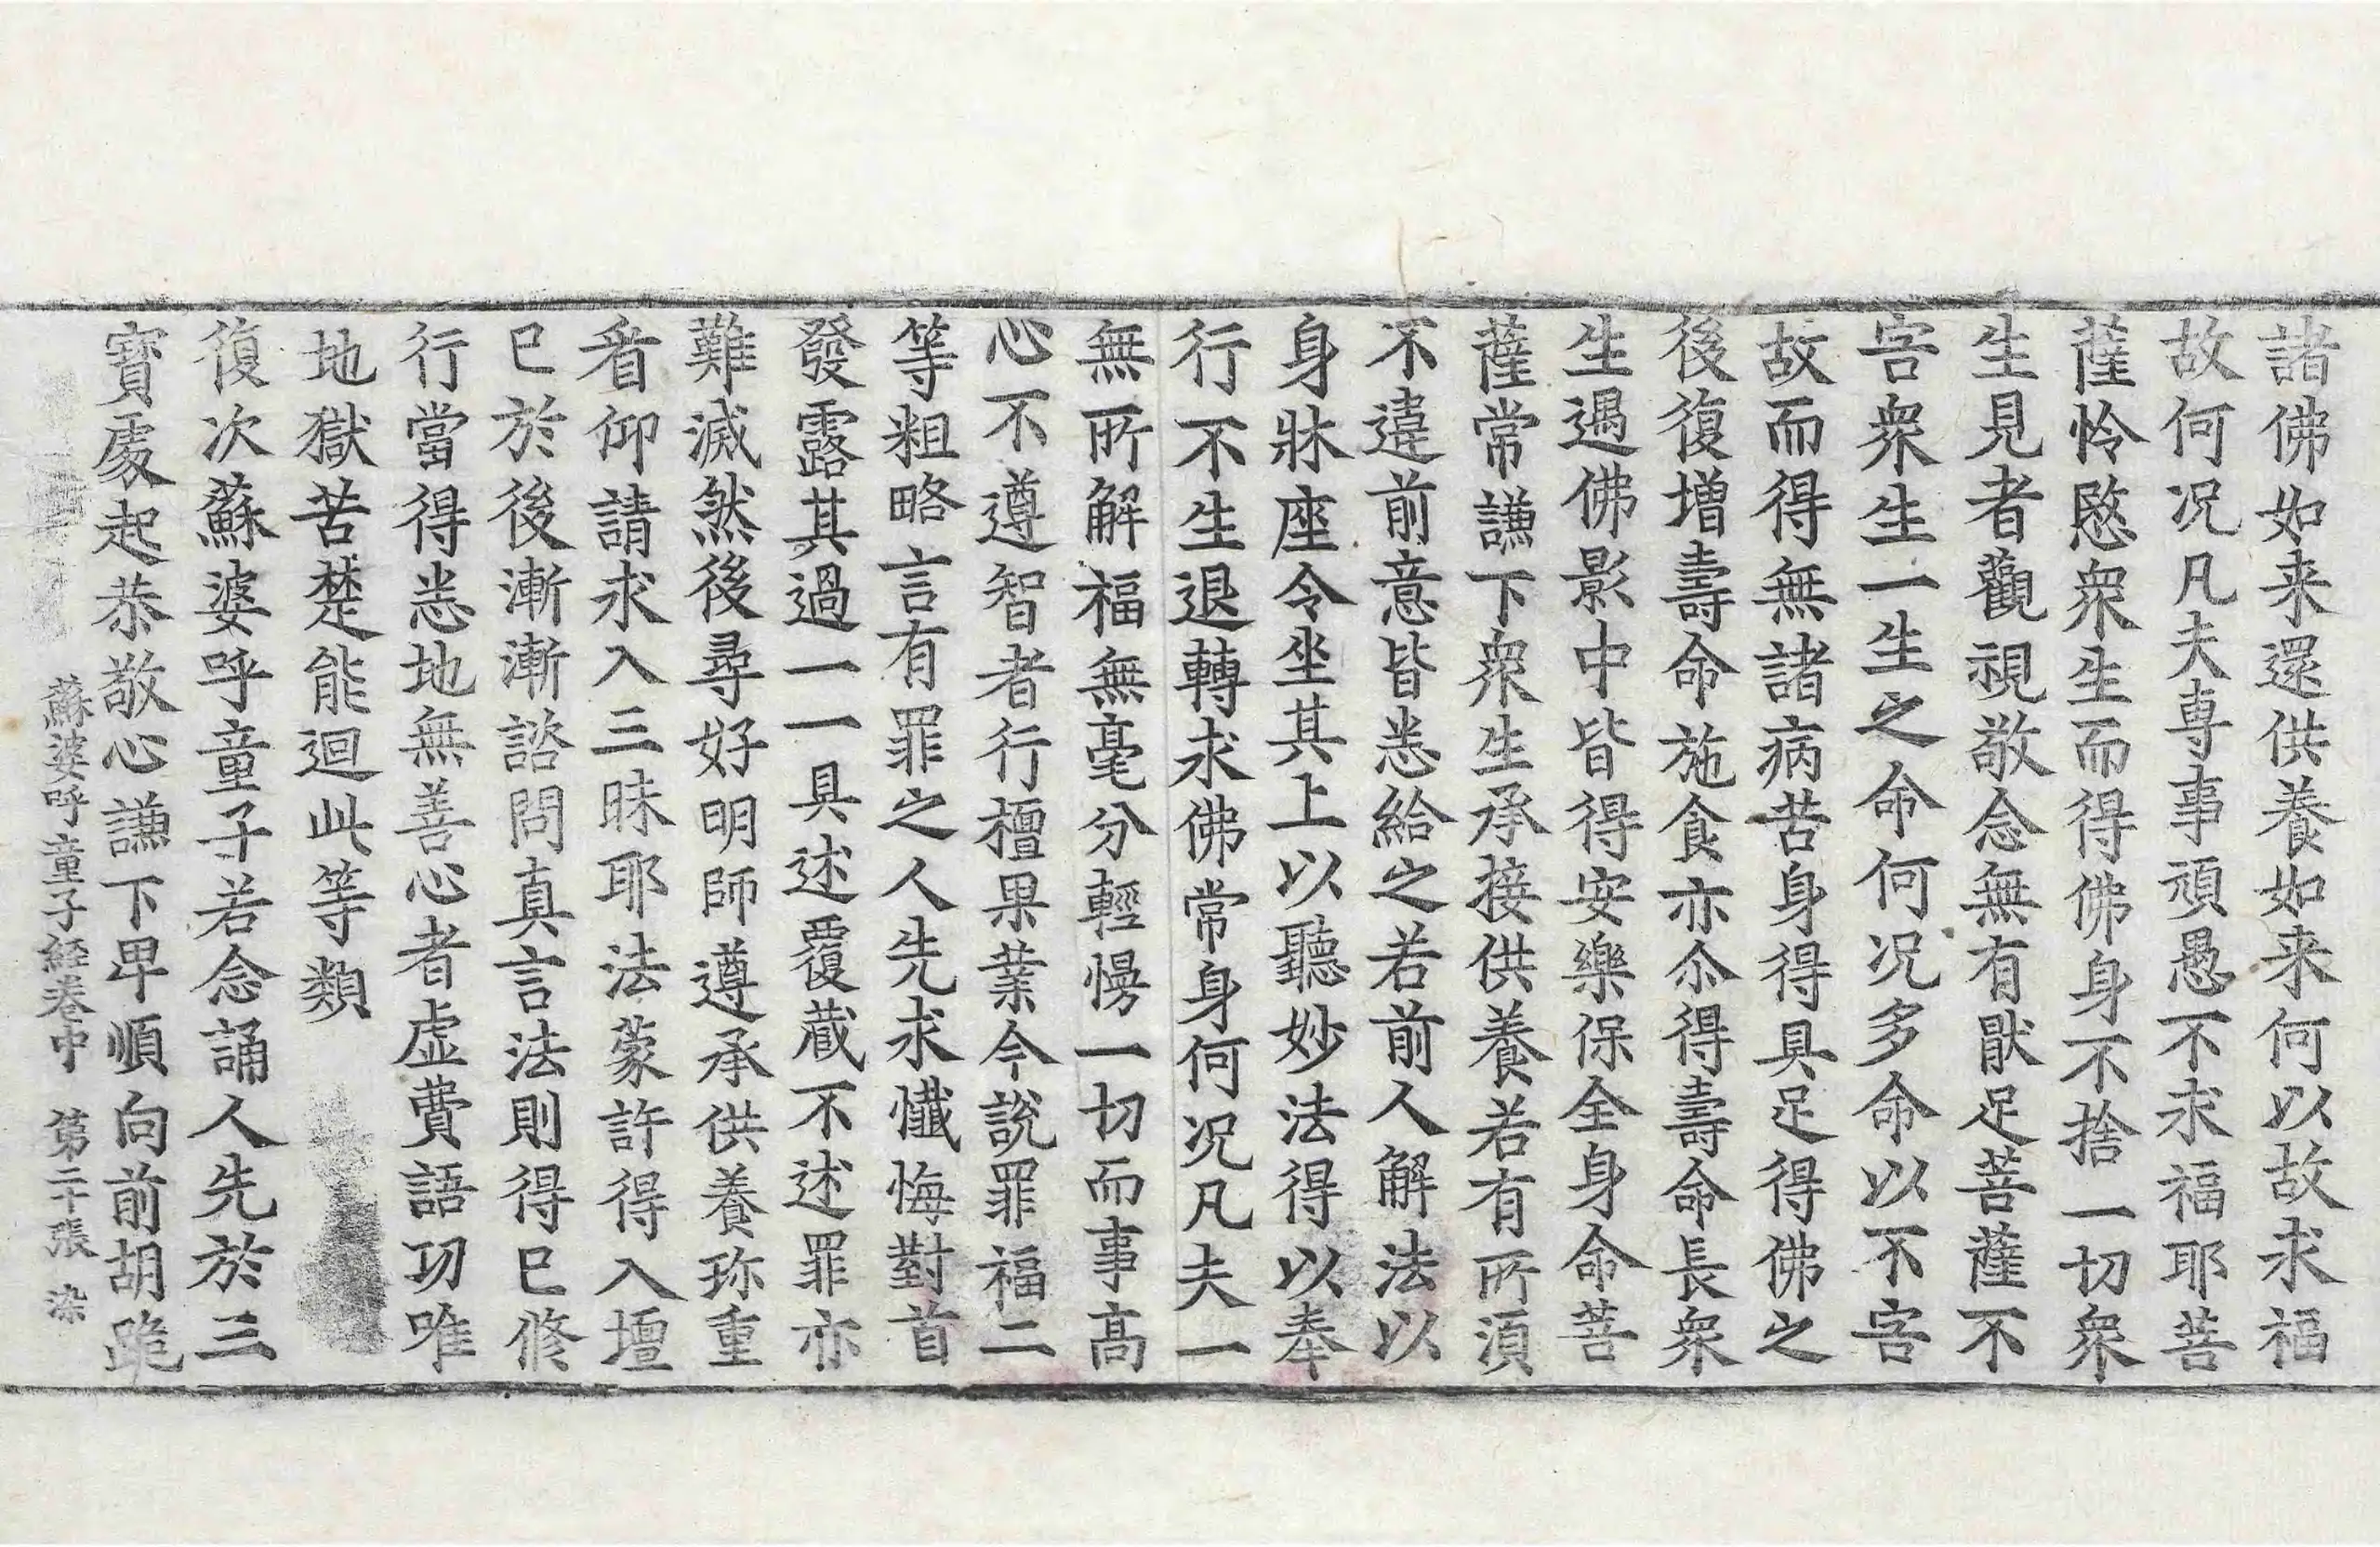 諸佛如来還供養如来何以故求福
故何况凡夫専事頑愚不求福耶菩
薩怜愍衆生而得佛身不捨一切衆
生見者觀視敬念無有猒足菩薩不
害衆生一生之命何况多命以不害
故而得無諸病苦身得具足得佛之
後復增壽命施食亦尒得壽命長衆
生遇佛影中皆得安樂保全身命菩
薩常謙下衆生承接供養若有所湏
不違前意皆悉給之若前人解法以
身牀座令坐其上以聽妙法得以奉
行不生退轉求佛常身何况凡夫一
無所解福無毫分輕慢一切而事高
心不遵智者行檀果業今說罪福二
等粗略言有罪之人先求懺悔對首
發露其過一一具述覆蔵不述罪亦
難滅然後尋好明師遵承供養珎重
看仰請求入三昧耶法蒙許得入壇
已於後漸漸諮問真言法則得已修
行當得悉地無善心者虛費語功唯
地獄苦楚能迴此等類
復次蘇婆呼童子若念誦人先於三
寳處起恭敬心謙下卑順向前胡跪
蘇婆呼童子経卷中　第二十張　染